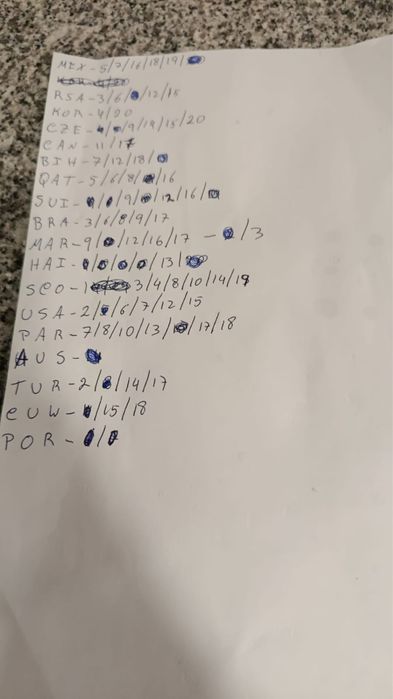 MEX - 5/7/16/18/19/
RSA - 3/6/ /12/15
KOR - 4/20
CZE - /9/14/15/20
CAN - 11/17
BIH - 7/12/18/
QAT - 5/6/8/ /16
SUI - / /9/ /12/16/
BRA - 3/6/8/9/17
MAR - 9/ /12/16/17 - /3
HAI - / / / /13/
SCO - 3/4/8/10/14/19
USA - 2/ /6/7/12/15
PAR - 7/8/10/13/ /17/18
AUS -
TUR - 2/ /14/17
CUW - /15/18
POR - /